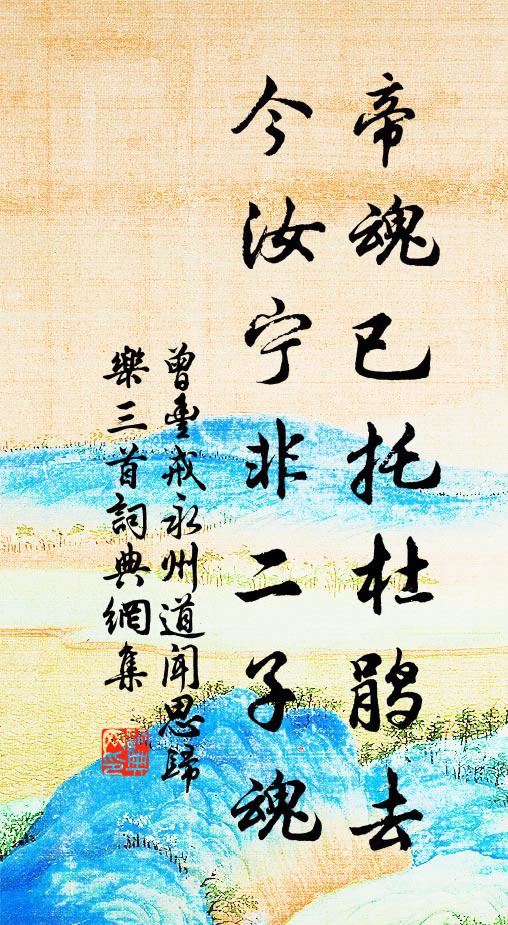 帝魂已托杜鹃去
今汝宁非二子魂
曾豊戒永州道闻思歸
樂三首詞典網集